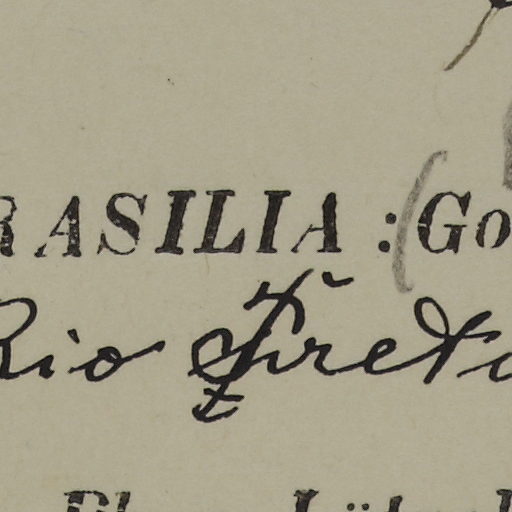 RASILIA : (Go
Rio Preto